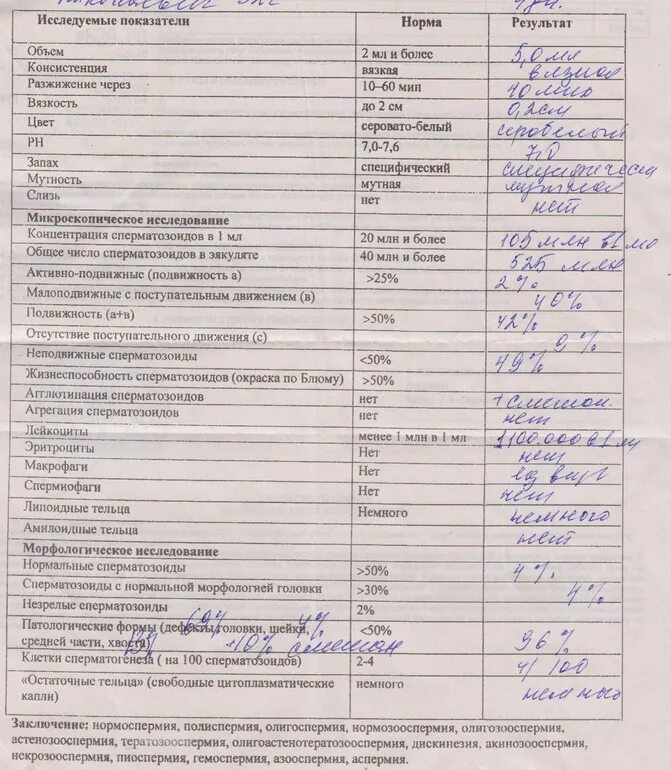 Исследуемые показатели Норма Результат
Объем 2 мл и более 5,0 мл
Консистенция вязкая вязкая
Разжижение через 10–60 мин 40 мин
Вязкость до 2 см 0,2 см
Цвет серовато-белый серобелый
PH 7,0-7,6 7,0
Запах специфический специфический
Мутность мутная мутная
Слизь нет нет
Микроскопическое исследование
Концентрация сперматозоидов в 1 мл 20 млн и более 105 млн в 1 мл
Общее число сперматозоидов в эякуляте 40 млн и более 525 млн
Активно-подвижные (подвижность а) >25% 2%
Малоподвижные с поступательным движением (в) 40%
Подвижность (а+в) >50% 42%
Отсутствие поступательного движения (с) 9%
Неподвижные сперматозоиды <50% 49%
Жизнеспособность сперматозоидов (окраска по Блюму) >50%
Агглютинация сперматозоидов нет + смешан.
Агрегация сперматозоидов нет нет
Лейкоциты менее 1 млн в 1 мл 100.000 в 1 мл
Эритроциты Нет нет
Макрофаги Нет
Спермиофаги Нет нет
Липоидные тельца Немного немного
Амилоидные тельца нет
Морфологическое исследование
Нормальные сперматозоиды >50% 4%
Сперматозоиды с нормальной морфологией головки >30% 4%
Незрелые сперматозоиды 2%
69% 4%
Патологические формы (дефекты головки, шейки, <50% 96%
средней части, хвоста) 13% +10% смешан
Клетки сперматогенеза ( на 100 сперматозоидов) 2-4 4/100
«Остаточные тельца» (свободные цитоплазматические немного немного
капли)
Заключение: нормоспермия, полиспермия, олигоспермия, нормозооспермия, олигозооспермия,
астенозооспермия, тератозооспермия, олигоастенотератозооспермия, дискинезия, акинозооспермия,
некрозооспермия, пиоспермия, гемоспермия, азооспермия, аспермия.